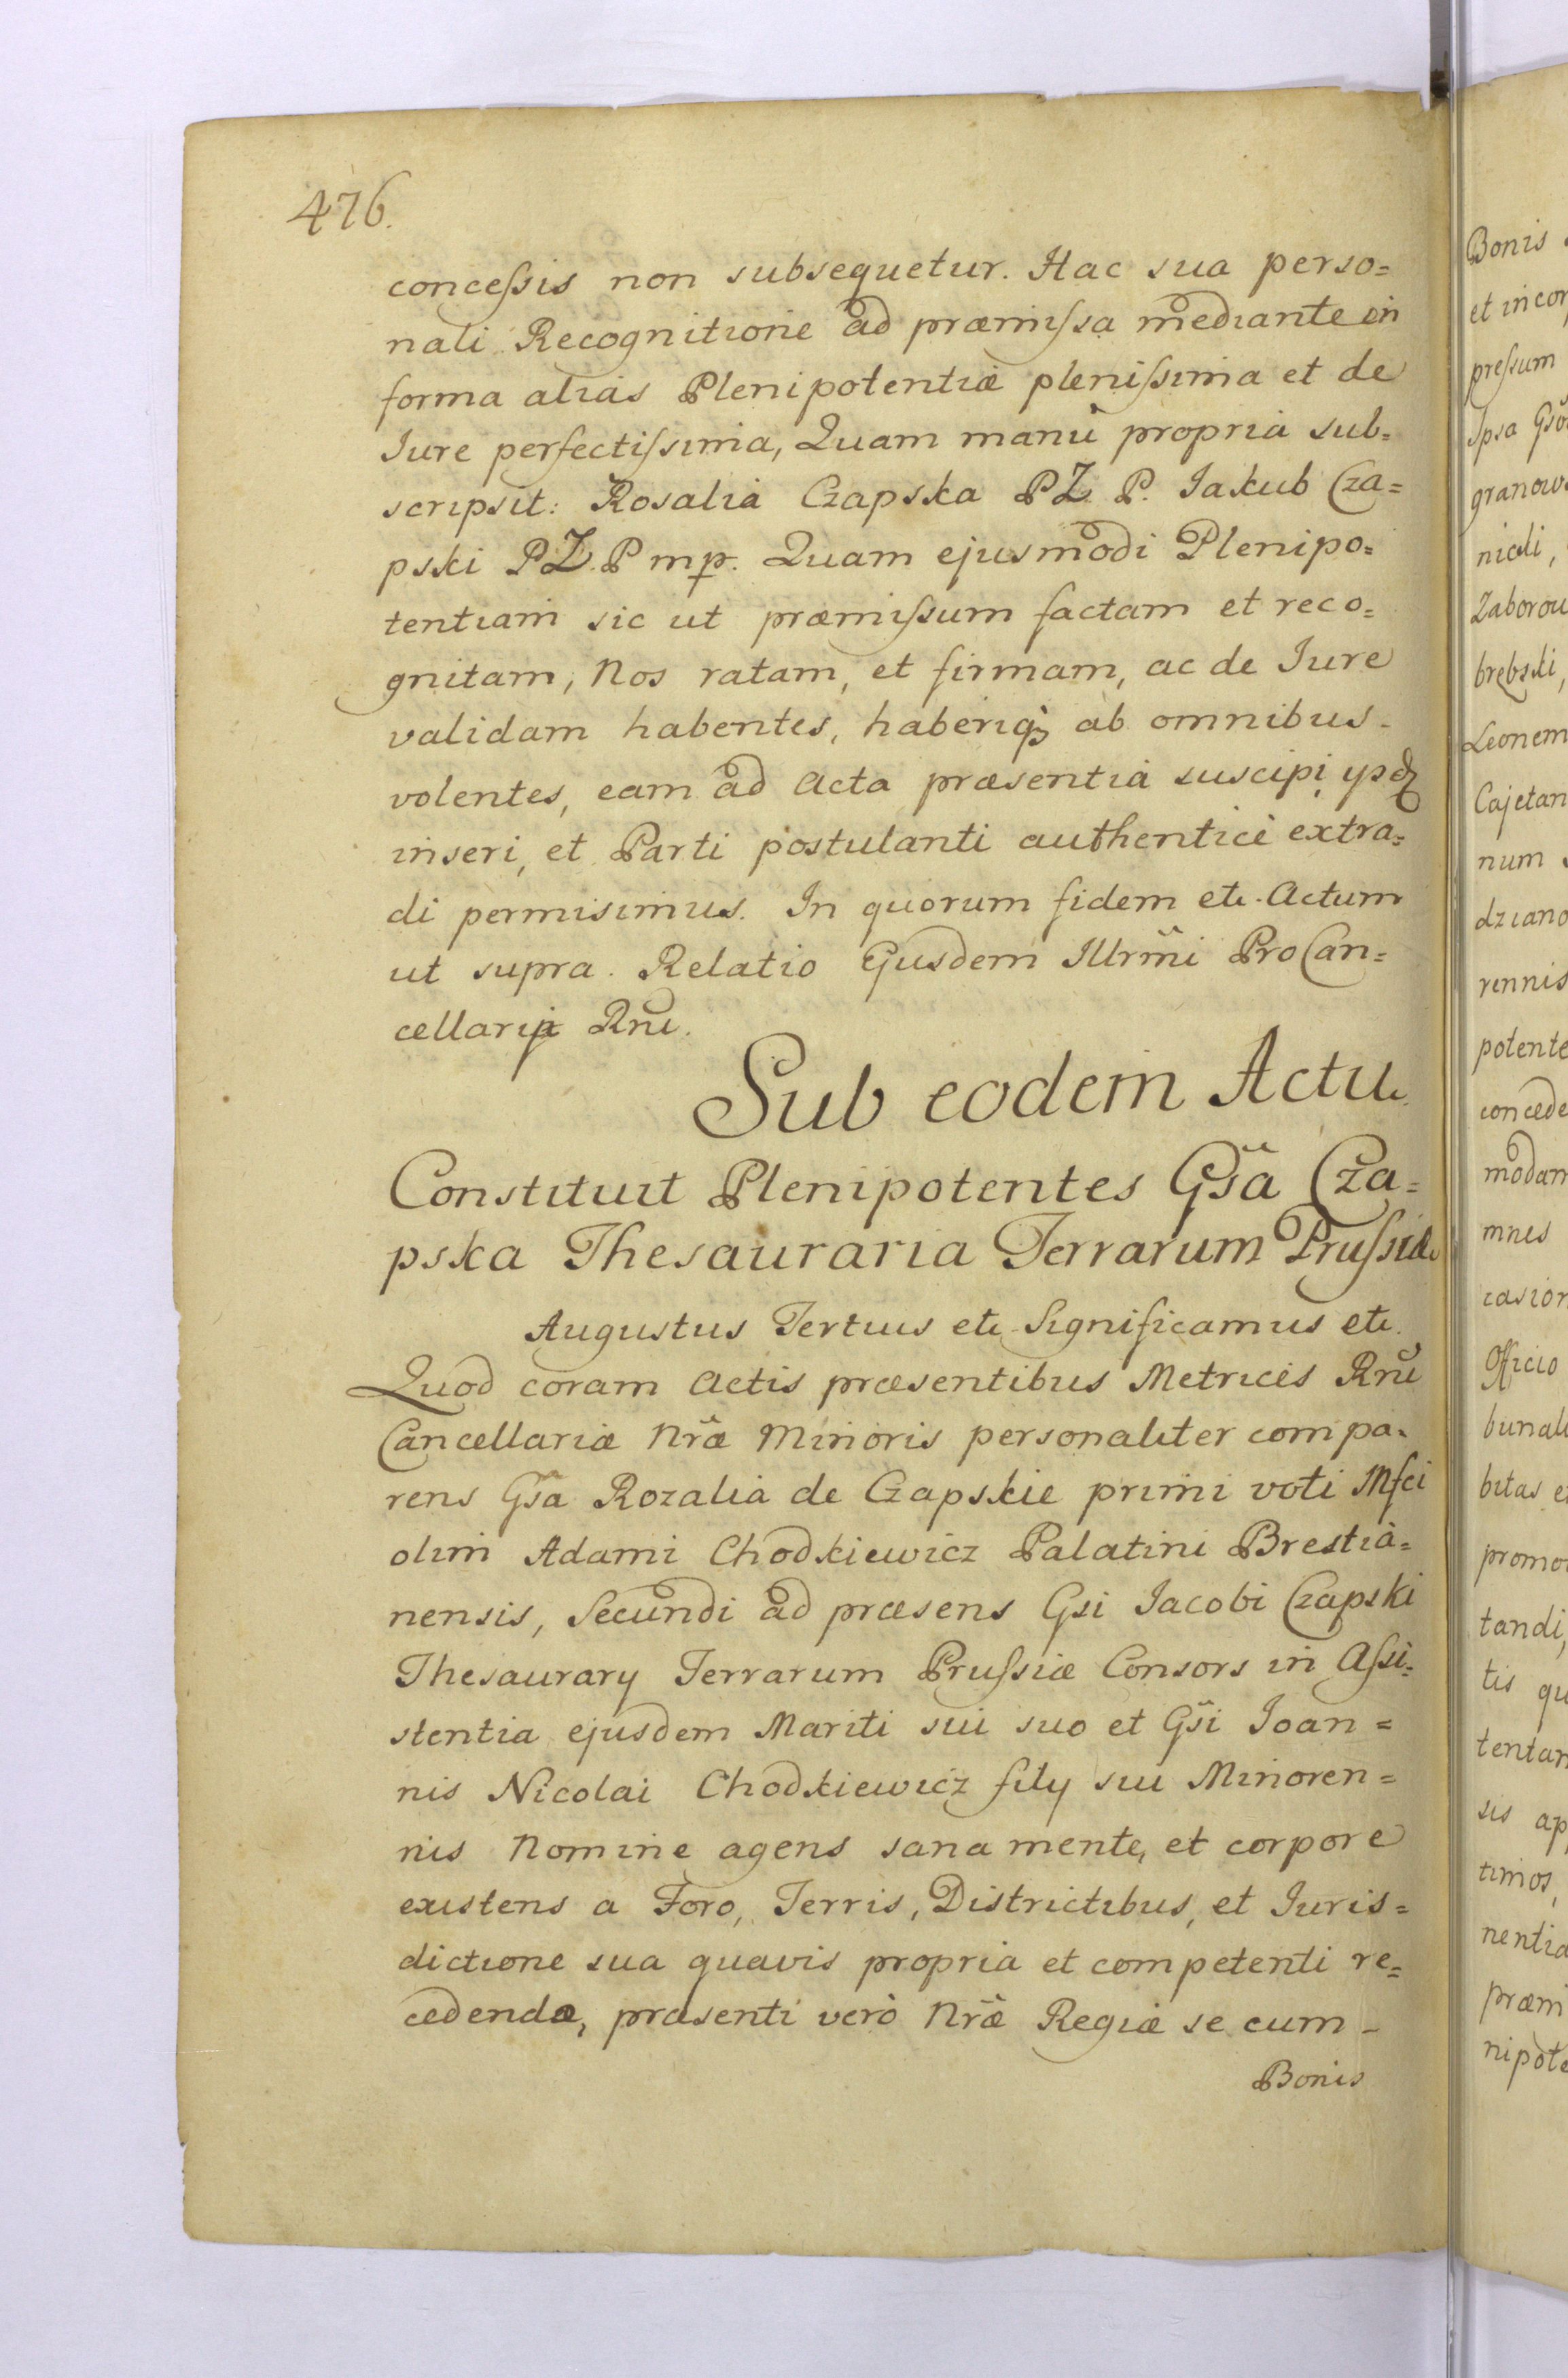 476.
concessis non subsequetur. Hac sua perso=
nali Recognitione ad præmissa mediante in
forma alias Plenipotentiæ plenissima et de
Iure perfectissima, Quam manù propria sub=
scripsit: Rosalia Czapska PZ P. Iakub Cza=
pski PZ. P mp. Quam ejusmodi Plenipo=
tentiam sic ut præmissum factam et reco=
gnitam, Nos ratam, et firmam, ac de Iure
validam habentes, haberiq3 ab omnibus
volentes, eam ad Acta præsentia suscipi,
inseri, et Parti postulanti authenticè extra=
di permisimus. In quorum fidem etc. Actum
ut supra. Relatio Ejusdem Illrmi ProCan=
cellarij Rni.
Sub eodem Actu.
Constituit Plenipotentes Gsa Cza=
pska Thesauraria Terrarum Prussiæ
Augustus Tertius etc Significamus etc.
Quod coram Actis præsentibus Metrices Rni
Cancellariæ Nræ Minoris personaliter compa=
rens Gsa Rozalia de Czapskie primi voti Mfci
olim Adami Chodkiewicz Palatini Brestia=
nensis, Secundi ad præsens Gsi Iacobi Czapski
Thesaurary Terrarum Prussiæ Consors in Assi=
stentia ejusdem Mariti sui suo et Gsi Ioan=
nis Nicolai Chodkiewicz fily sui Minoren=
nis Nomine agens sana mente, et corpore
existens a Foro, Terris, Districtibus, et Iuris=
dictione sua quavis propria et competenti re=
cedendo, præsenti verò Nræ Regiæ se cum -
Bonis
Bonis
et incor
pressum
Ipsa Gso
granow
nicali,
Zaborow
brebski,
Leonem
Cajetan
num
dziano
rennis
potente
concede
modam
mnes
casion
Officio
bunali
bitas e
promo
tandi,
tis qu
tentan
sis ap
timos,
nentia
præm
nipote